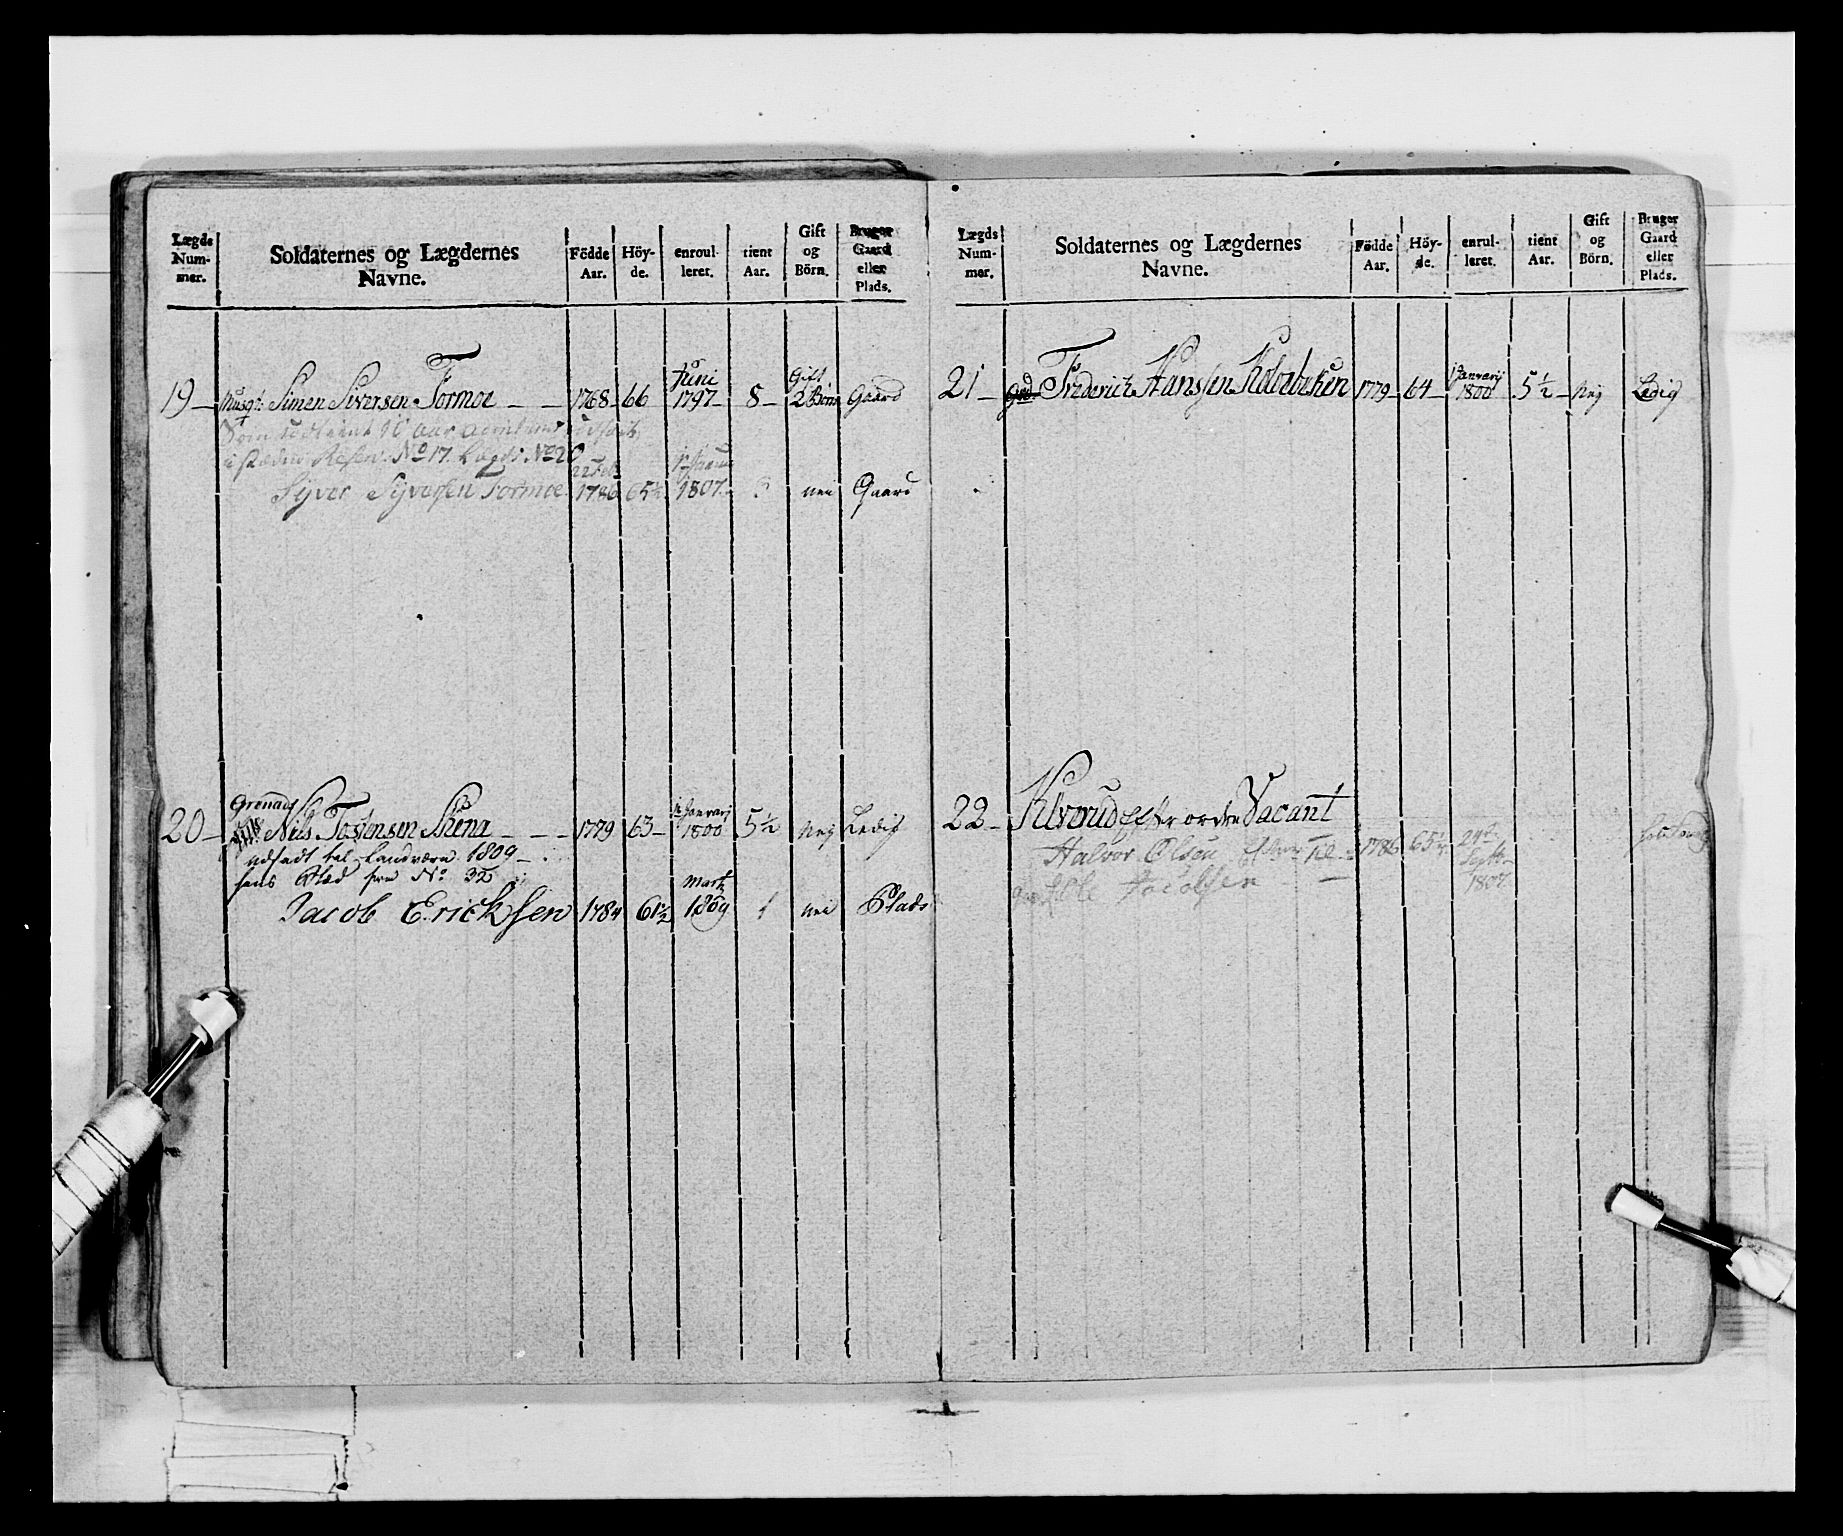 Lægds Num- mer.
Soldaternes og Lægdernes Navne.
Födde Aar.
Höy- de.
enroul- leret.
tient Aar.
Gift og Börn.
Bruger Gaard eller Plads.
19 Musqt: Simen Siversen Tormoe 1768 66 Juni 1797 8 Gift 2 Börn Gaard
i stæden Reserv. No 17. Lægd: No 20
Syver Syversen Tormoe 1786 65½ 1807 nei Gaard
20 Grenad
Nils Tostensen Skiena 1779 63 Janvarij 1800 5½ Nej Ledig
udsadt til Landværn 1809
hans Stæd fra No 32
Jacob Ericksen 1784 61½ Martz 1809 1 nei Plads
Lægds Num- mer.
Soldaternes og Lægdernes Navne.
Födde Aar.
Höy- de.
enrul- leret.
tient Aar.
Gift og Börn.
Bruger Gaard eller Plads.
21 Frederich Hanssen 1779 64 Janvarij 1800 5½ Nej Ledig
22 efter ordre Vacant
Halvor Olsen 1786 65½ 24de Septb. 1807
Ole Jacobsen